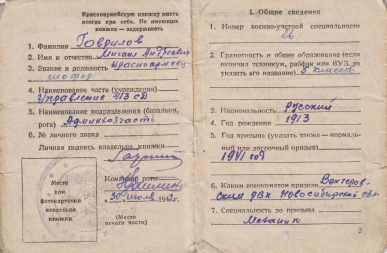 Красноармейскую книжку иметь
всегда при себе. Не имеющих
книжек — задерживать.
1. Фамилия Гаврилов
2. Имя и отчество Михаил Андреевич
3. Звание и должность Красноармеец
шофер
4. Наименование части (учреждения)
Управление 413 сд
5. Наименование подразделения (батальон,
рота) Админхозчасть
6. № личного знака
Личная подпись владельца книжки
Командир роты
Место
для
фотокарточки
владельца
книжки
30 июля 1942 г.
(Место
печати части)
I. Общие сведения
1. Номер военно-учетной специальности
26
2. Грамотность и общее образование (если
окончил техникум, рабфак или ВУЗ, то
указать его название) 5 классов
3. Национальность Русский
4. Год рождения 1913
5. Год призыва (указать также — нормаль-
ный или досрочный призыв)
1941 год
6. Каким военкоматом призван Венгеров-
ским РВК Новосибирской обл.
7. Специальность до призыва
Механик
3